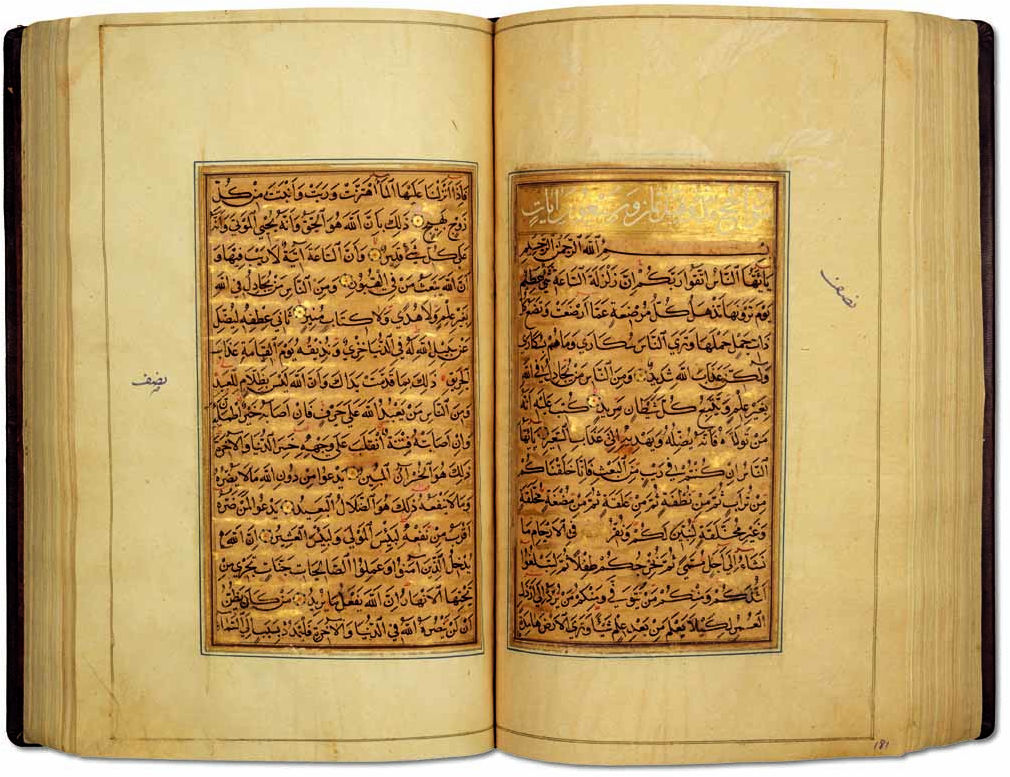 بِسْمِ اللَّهِ الرَّحْمٰنِ الرَّحِيمِ
يَا أَيُّهَا النَّاسُ اتَّقُوا رَبَّكُمْ إِنَّ زَلْزَلَةَ السَّاعَةِ شَيْءٌ عَظِيمٌ
يَوْمَ تَرَوْنَهَا تَذْهَلُ كُلُّ مُرْضِعَةٍ عَمَّا أَرْضَعَتْ وَتَضَعُ كُلُّ
ذَاتِ حَمْلٍ حَمْلَهَا وَتَرَى النَّاسَ سُكَارَى وَمَا هُمْ بِسُكَارَى
وَلَكِنَّ عَذَابَ اللَّهِ شَدِيدٌ وَمِنَ النَّاسِ مَنْ يُجَادِلُ فِي اللَّهِ
بِغَيْرِ عِلْمٍ وَيَتَّبِعُ كُلَّ شَيْطَانٍ مَرِيدٍ كُتِبَ عَلَيْهِ أَنَّهُ
مَنْ تَوَلَّاهُ فَأَنَّهُ يُضِلُّهُ وَيَهْدِيهِ إِلَى عَذَابِ السَّعِيرِ يَا أَيُّهَا
النَّاسُ إِنْ كُنْتُمْ فِي رَيْبٍ مِنَ الْبَعْثِ فَإِنَّا خَلَقْنَاكُمْ
مِنْ تُرَابٍ ثُمَّ مِنْ نُطْفَةٍ ثُمَّ مِنْ عَلَقَةٍ ثُمَّ مِنْ مُضْغَةٍ مُخَلَّقَةٍ
وَغَيْرِ مُخَلَّقَةٍ لِنُبَيِّنَ لَكُمْ وَنُقِرُّ فِي الْأَرْحَامِ مَا
نَشَاءُ إِلَى أَجَلٍ مُسَمًّى ثُمَّ نُخْرِجُكُمْ طِفْلًا ثُمَّ لِتَبْلُغُوا
أَشُدَّكُمْ وَمِنْكُمْ مَنْ يُتَوَفَّى وَمِنْكُمْ مَنْ يُرَدُّ إِلَى أَرْذَلِ
الْعُمُرِ لِكَيْلَا يَعْلَمَ مِنْ بَعْدِ عِلْمٍ شَيْئًا وَتَرَى الْأَرْضَ هَامِدَةً
نصف
181
فَإِذَا أَنْزَلْنَا عَلَيْهَا الْمَاءَ اهْتَزَّتْ وَرَبَتْ وَأَنْبَتَتْ مِنْ كُلِّ
زَوْجٍ بَهِيجٍ ذَلِكَ بِأَنَّ اللَّهَ هُوَ الْحَقُّ وَأَنَّهُ يُحْيِي الْمَوْتَى وَأَنَّهُ
عَلَى كُلِّ شَيْءٍ قَدِيرٌ وَأَنَّ السَّاعَةَ آتِيَةٌ لَا رَيْبَ فِيهَا وَ
أَنَّ اللَّهَ يَبْعَثُ مَنْ فِي الْقُبُورِ وَمِنَ النَّاسِ مَنْ يُجَادِلُ فِي اللَّهِ
بِغَيْرِ عِلْمٍ وَلَا هُدًى وَلَا كِتَابٍ مُنِيرٍ ثَانِيَ عِطْفِهِ لِيُضِلَّ
عَنْ سَبِيلِ اللَّهِ لَهُ فِي الدُّنْيَا خِزْيٌ وَنُذِيقُهُ يَوْمَ الْقِيَامَةِ عَذَابَ
الْحَرِيقِ ذَلِكَ بِمَا قَدَّمَتْ يَدَاكَ وَأَنَّ اللَّهَ لَيْسَ بِظَلَّامٍ لِلْعَبِيدِ
وَمِنَ النَّاسِ مَنْ يَعْبُدُ اللَّهَ عَلَى حَرْفٍ فَإِنْ أَصَابَهُ خَيْرٌ اطْمَأَنَّ بِهِ
وَإِنْ أَصَابَتْهُ فِتْنَةٌ انْقَلَبَ عَلَى وَجْهِهِ خَسِرَ الدُّنْيَا وَالْآخِرَةَ
ذَلِكَ هُوَ الْخُسْرَانُ الْمُبِينُ يَدْعُوا مِنْ دُونِ اللَّهِ مَا لَا يَضُرُّهُ
وَمَا لَا يَنْفَعُهُ ذَلِكَ هُوَ الضَّلَالُ الْبَعِيدُ يَدْعُوا لَمَنْ ضَرُّهُ
أَقْرَبُ مِنْ نَفْعِهِ لَبِئْسَ الْمَوْلَى وَلَبِئْسَ الْعَشِيرُ إِنَّ اللَّهَ
يُدْخِلُ الَّذِينَ آمَنُوا وَعَمِلُوا الصَّالِحَاتِ جَنَّاتٍ تَجْرِي مِنْ
تَحْتِهَا الْأَنْهَارُ إِنَّ اللَّهَ يَفْعَلُ مَا يُرِيدُ مَنْ كَانَ يَظُنُّ
أَنْ لَنْ يَنْصُرَهُ اللَّهُ فِي الدُّنْيَا وَالْآخِرَةِ فَلْيَمْدُدْ بِسَبَبٍ إِلَى السَّمَاءِ
نصف